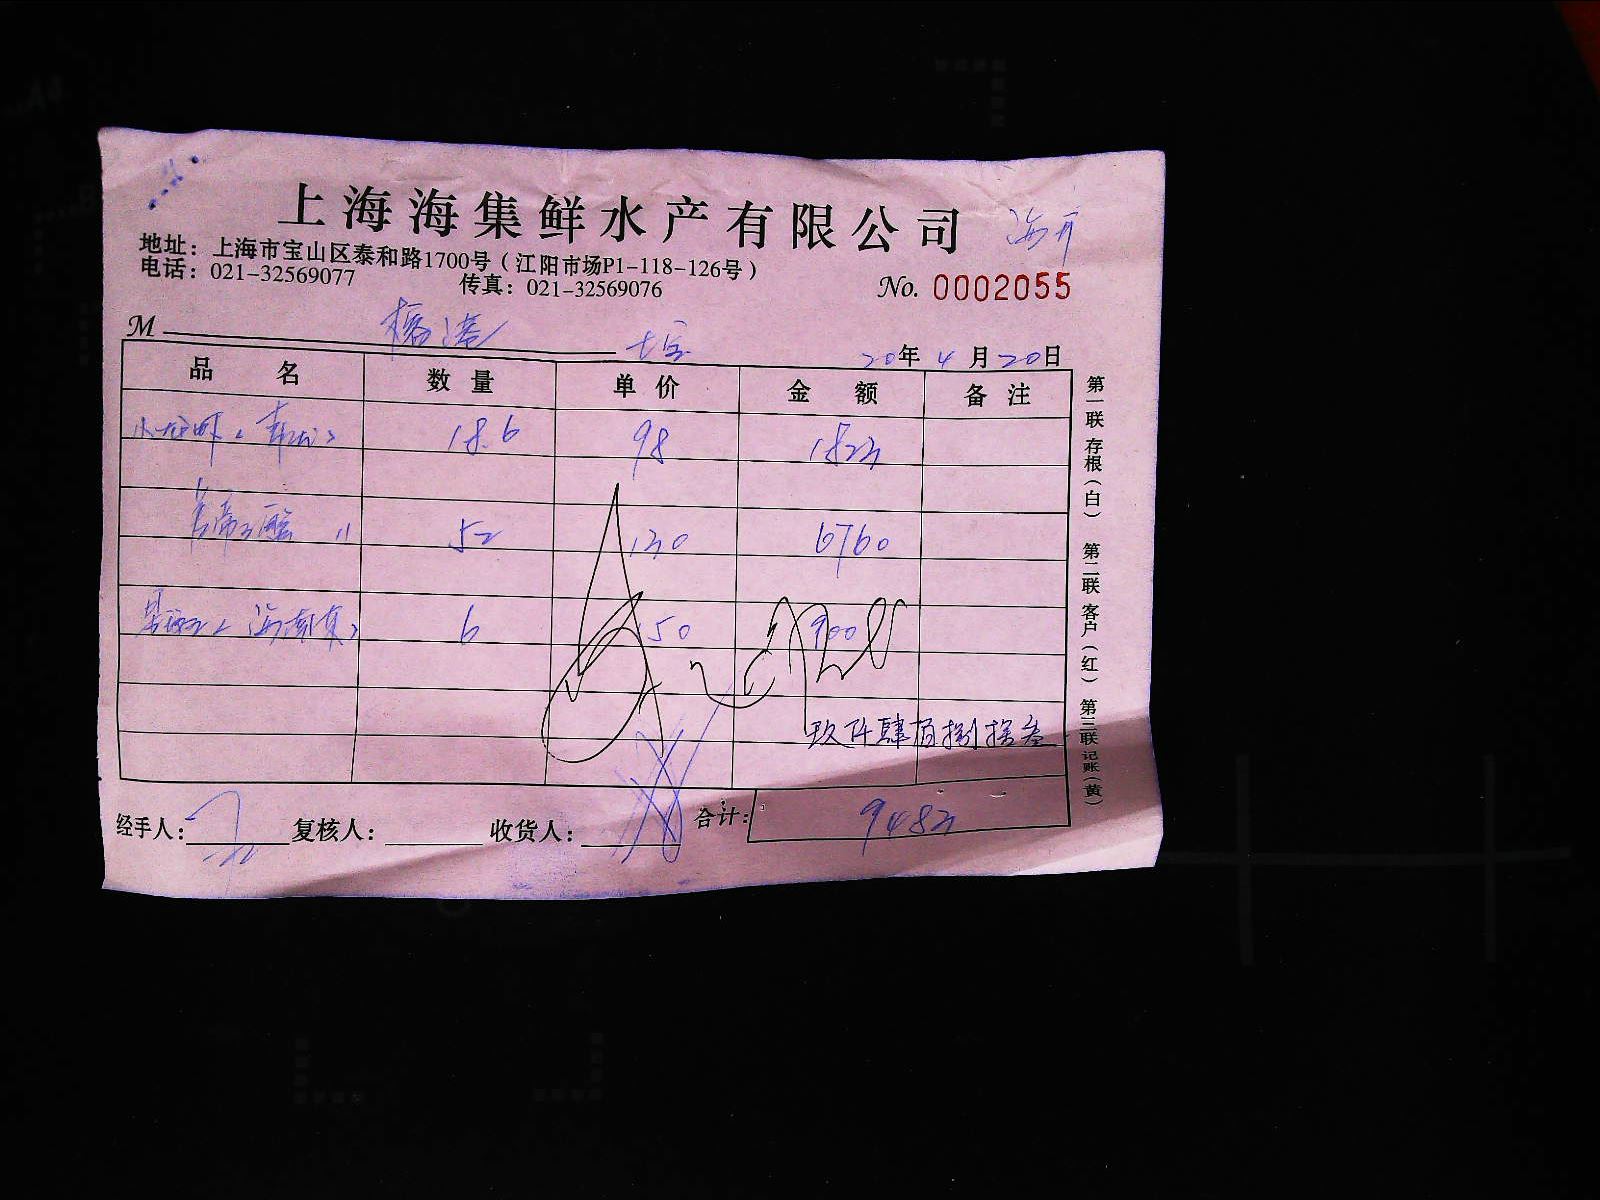 上海海集鲜水产有限公司
地址：上海市宝山区泰和路1700号（江阳市场P1-118-126号）
电话：021-32569077 传真：021-32569076
No. 0002055
M 七宝
20年4月20日
品名 数量 单价 金额 备注
小龙虾 18.6 98 1823
52 130 6760
6 150 900
玖仟肆佰捌拾叁
经手人： 复核人： 收货人： 合计： 9483
第一联 存根（白） 第二联 客户（红） 第三联 记账（黄）